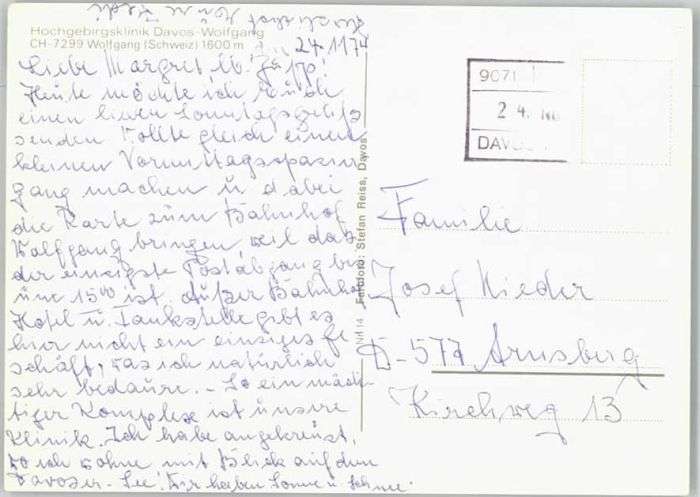 Hochgebirgsklinik Davos-Wolfgang
CH-7299 Wolfgang (Schweiz) 1600 m
24.11.74
Liebe Margret, lb. Jupp!
Heute möchte ich Euch
einen lieben Sonntagsgruß
senden. Wollte gleich einen
kleinen Vormittagsspazier
gang machen u. dabei
die Karte zum Bahnhof
Wolfgang bringen, weil das
der einzigste Postabgang bei
uns 15⁰⁰ ist. Außer Bahnhof
Hotel u. Tankstelle gibt es
hier nicht ein einziges Ge
schäft, was ich natürlich
sehr bedaure. - So ein mäch
tiger Komplex ist unsere
Klinik. Ich habe angekreuzt,
wo ich wohne mit Blick auf den
Davoser-See! Wir haben Sonne u. Schnee!
Farbfoto: Stefan Reiss, Davos
9071
24.
DAVOS
Familie
Josef Nieder
D-577 Arnsberg
Kirchweg 13